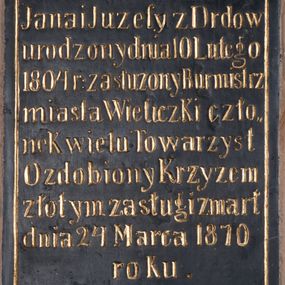 Jana i Juzefy z Drdow
urodzony dnia 10 Lutego
1804 r: zasłuzony Burmistrz
miasta Wieliczki czło„
nek wielu Towarzyst
Ozdobiony Krzyzem
złotym zasługi zmarł
dnia 24 Marca 1870
roku .